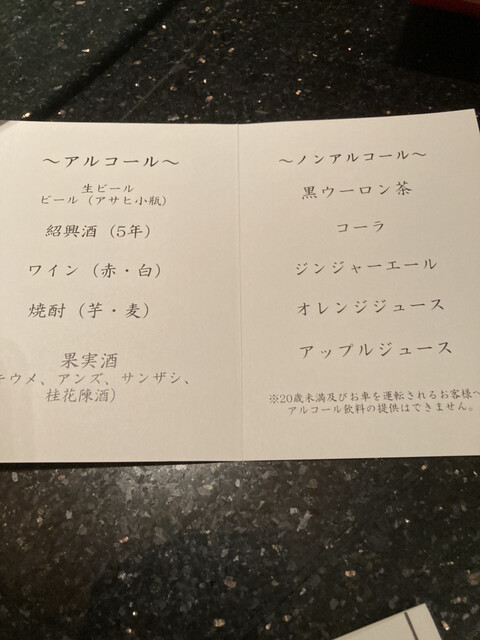 ～アルコール～
生ビール
ビール（アサヒ小瓶）
紹興酒（5年）
ワイン（赤・白）
焼酎（芋・麦）
果実酒
ウメ、アンズ、サンザシ、
桂花陳酒）
～ノンアルコール～
黒ウーロン茶
コーラ
ジンジャーエール
オレンジジュース
アップルジュース
※20歳未満及びお車を運転されるお客様へ
アルコール飲料の提供はできません。